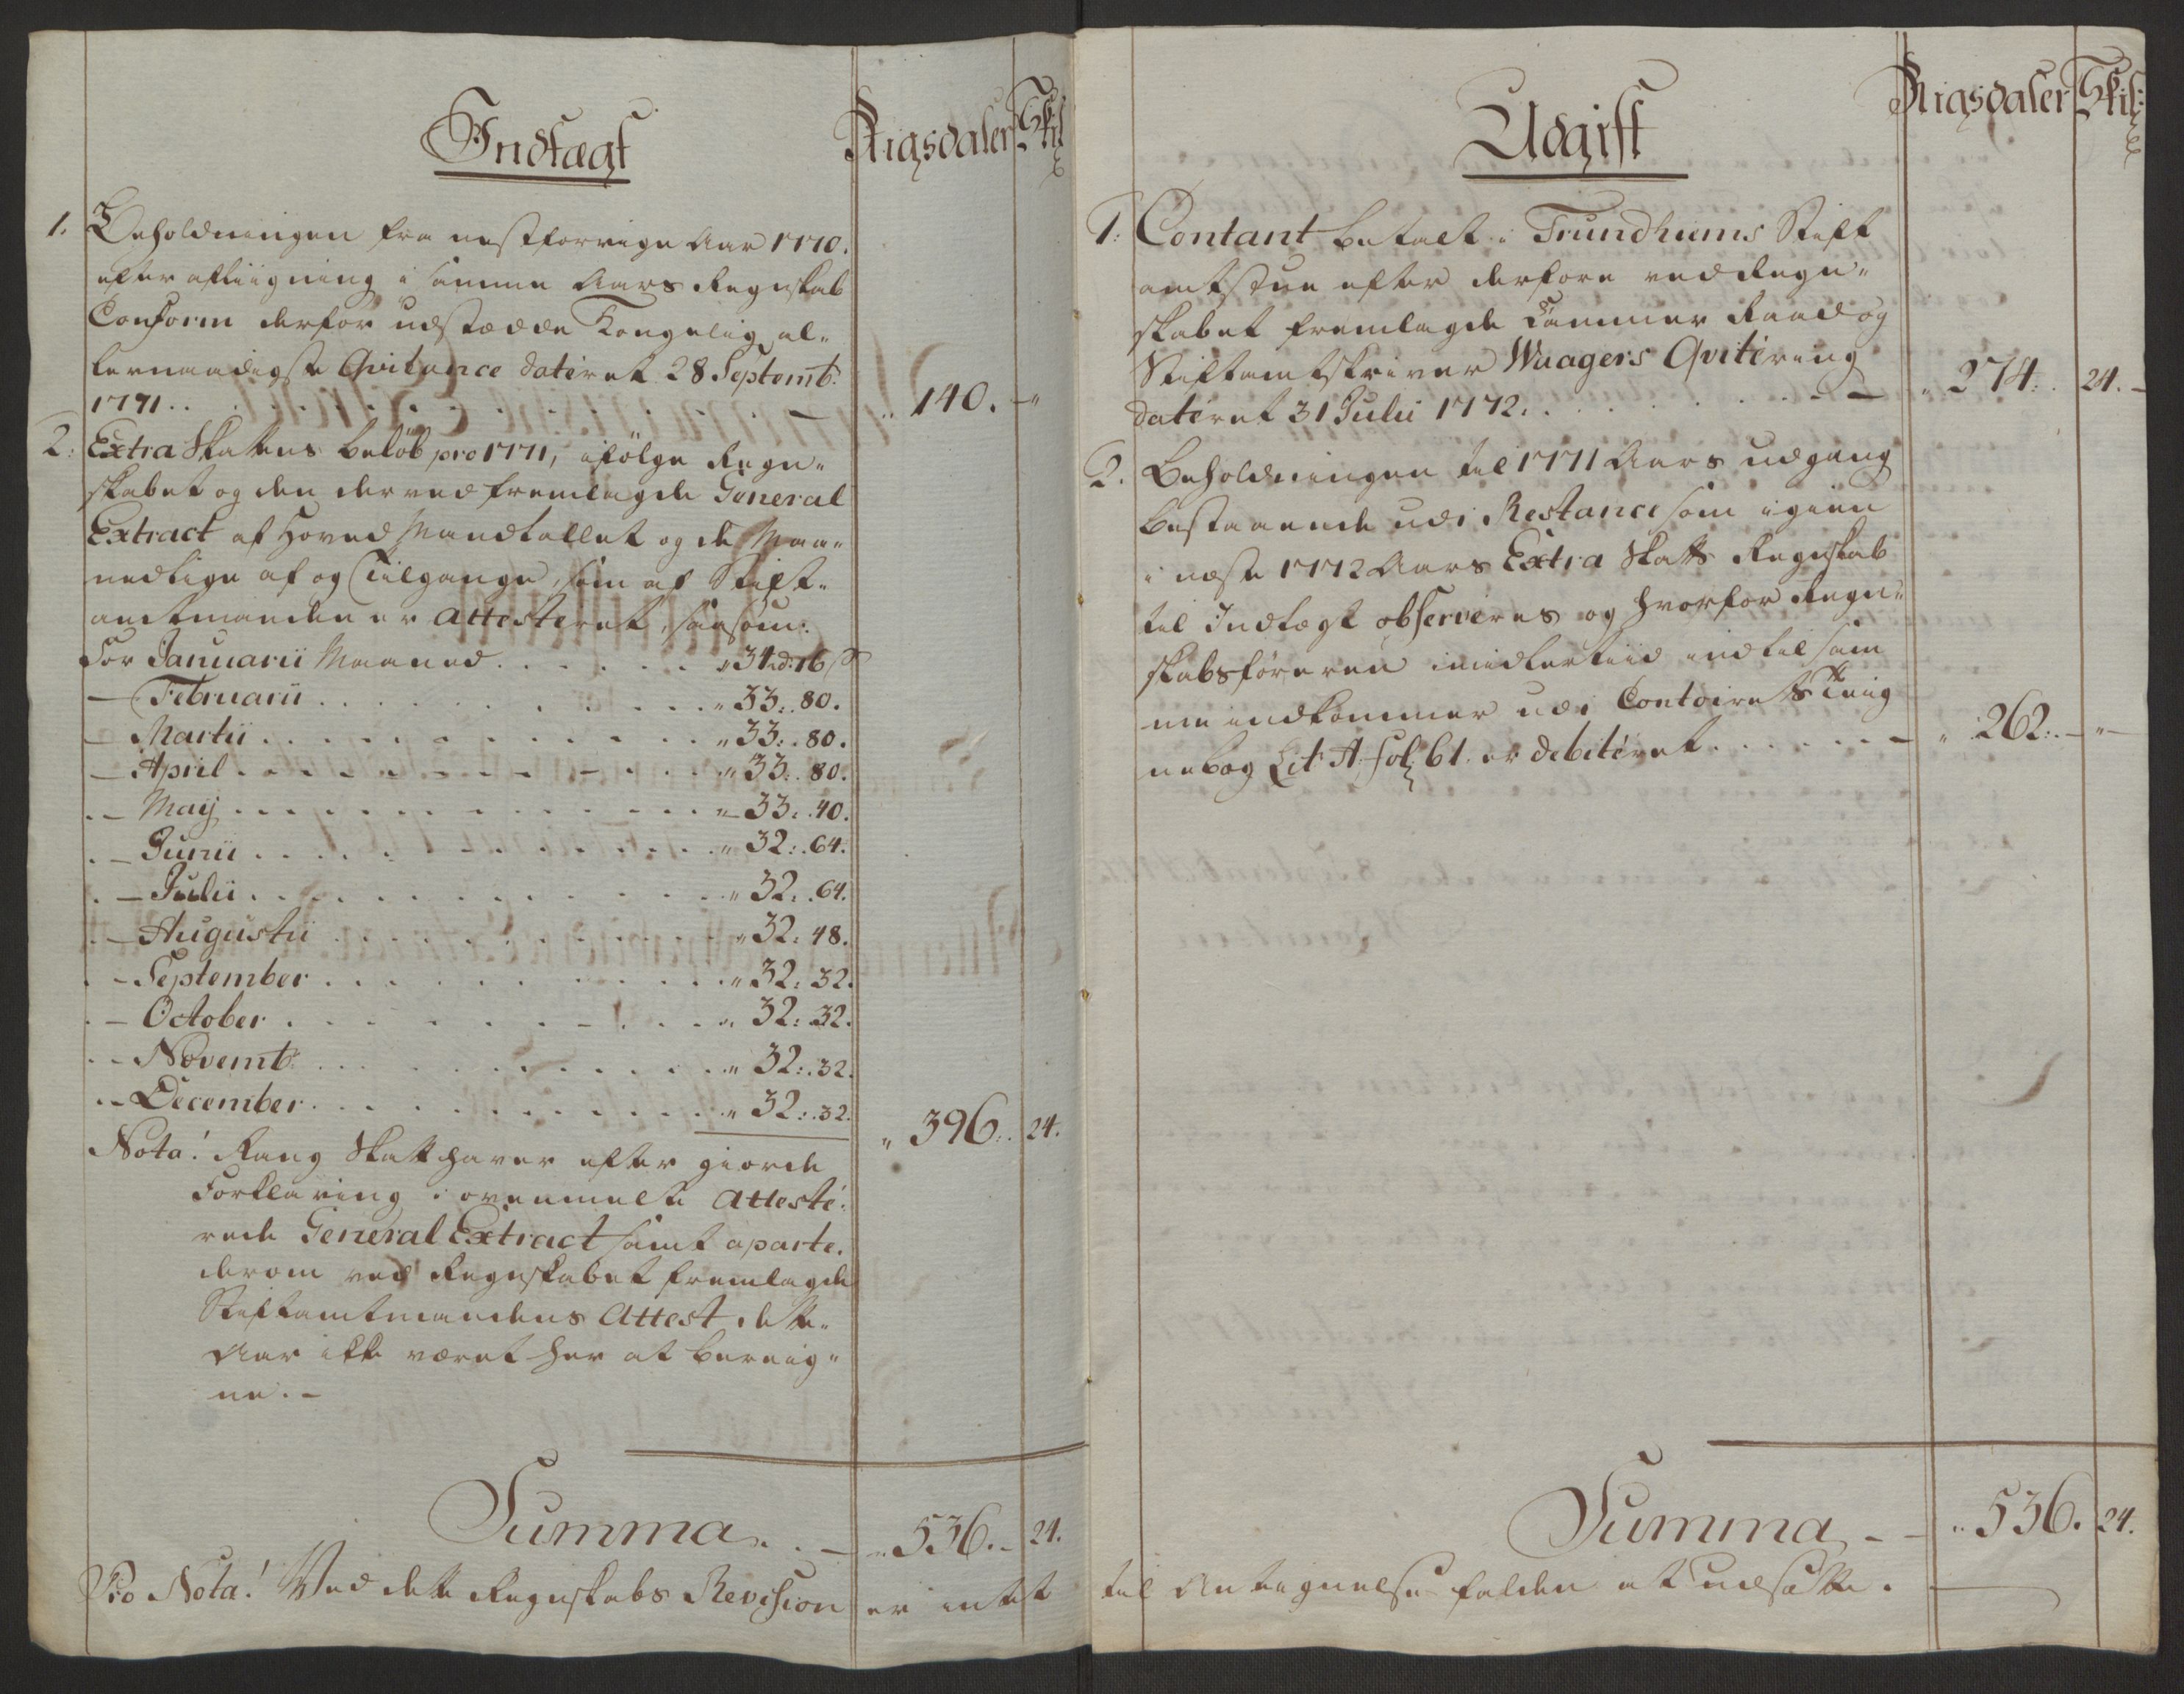 Indtægt
Rigsdaler Skil
1. Beholdningen fra nestforrige Aar 1770.
efter aflægning i samme Aars Regnskab
Conform derfor udstædde Kongelig al-
lernaadigste Qvitance dateret 28 Septemb:
1771. . . . " 140. - "
2: Extra Skatens beløb pro 1771, ifölge Regn-
skabet og den derved fremlagde General
Extract af Hoved Mandtallet og de Maa-
nedlige af og Tilgange, som af Stift-
amtmanden er Attesteret, saasom:
For Januarii Maaned . . . " 34 rd: 16 s
- Februarii . . . " 33: . 80.
- Martii . . . " 33: . 80.
- April . . . " 33: . 80.
- Maij . . . " 33: . 40.
- Junii . . . " 32: . 64.
- Julii . . . " 32: . 64.
- Augustii . . . " 32: 48.
- September . . . " 32: 32.
- October . . . " 32: 32.
- Novemb: . . . " 32: . 32.
- December . . . " 32: . 32. " 396: . 24.
Nota! Rang Skatt haver efter giorde
Forklaring i ovenmelte Atteste-
rede General Extract samt aparte
derom ved Regnskabet fremlagde
Stiftamtmandens Attest dette
Aar ikke været her at bereig-
ne. -
Summa . . - " 536. - 24.
Pro Nota! Ved dette Regnskabs Revision er intet til Antegnelse falden at udsætte.
Udgift
Rigsdaler Skil:
1: Contant betalt i Trundhiems Stift
amtstue efter derfore ved Regn-
skabet fremlagde Cammer Raad og
Stiftamtskriver Waagers Qvitering
dateret 31 Julii 1772. . . . - " 274: . 24. -
2. Beholdningen til 1771 Aars udgang
bestaaende udi Restance som igien
i næste 1772 Aars Extra Skatts Regnskab
til Indtægt observeres og hvorfor Regn-
skabsföreren imidlertiid indtil sam
me indkommer udi Contoirets
nebog Lit: A. fol: 61. er debiteret . . . - " 262: . - " -
Summa - - " 536. 24.